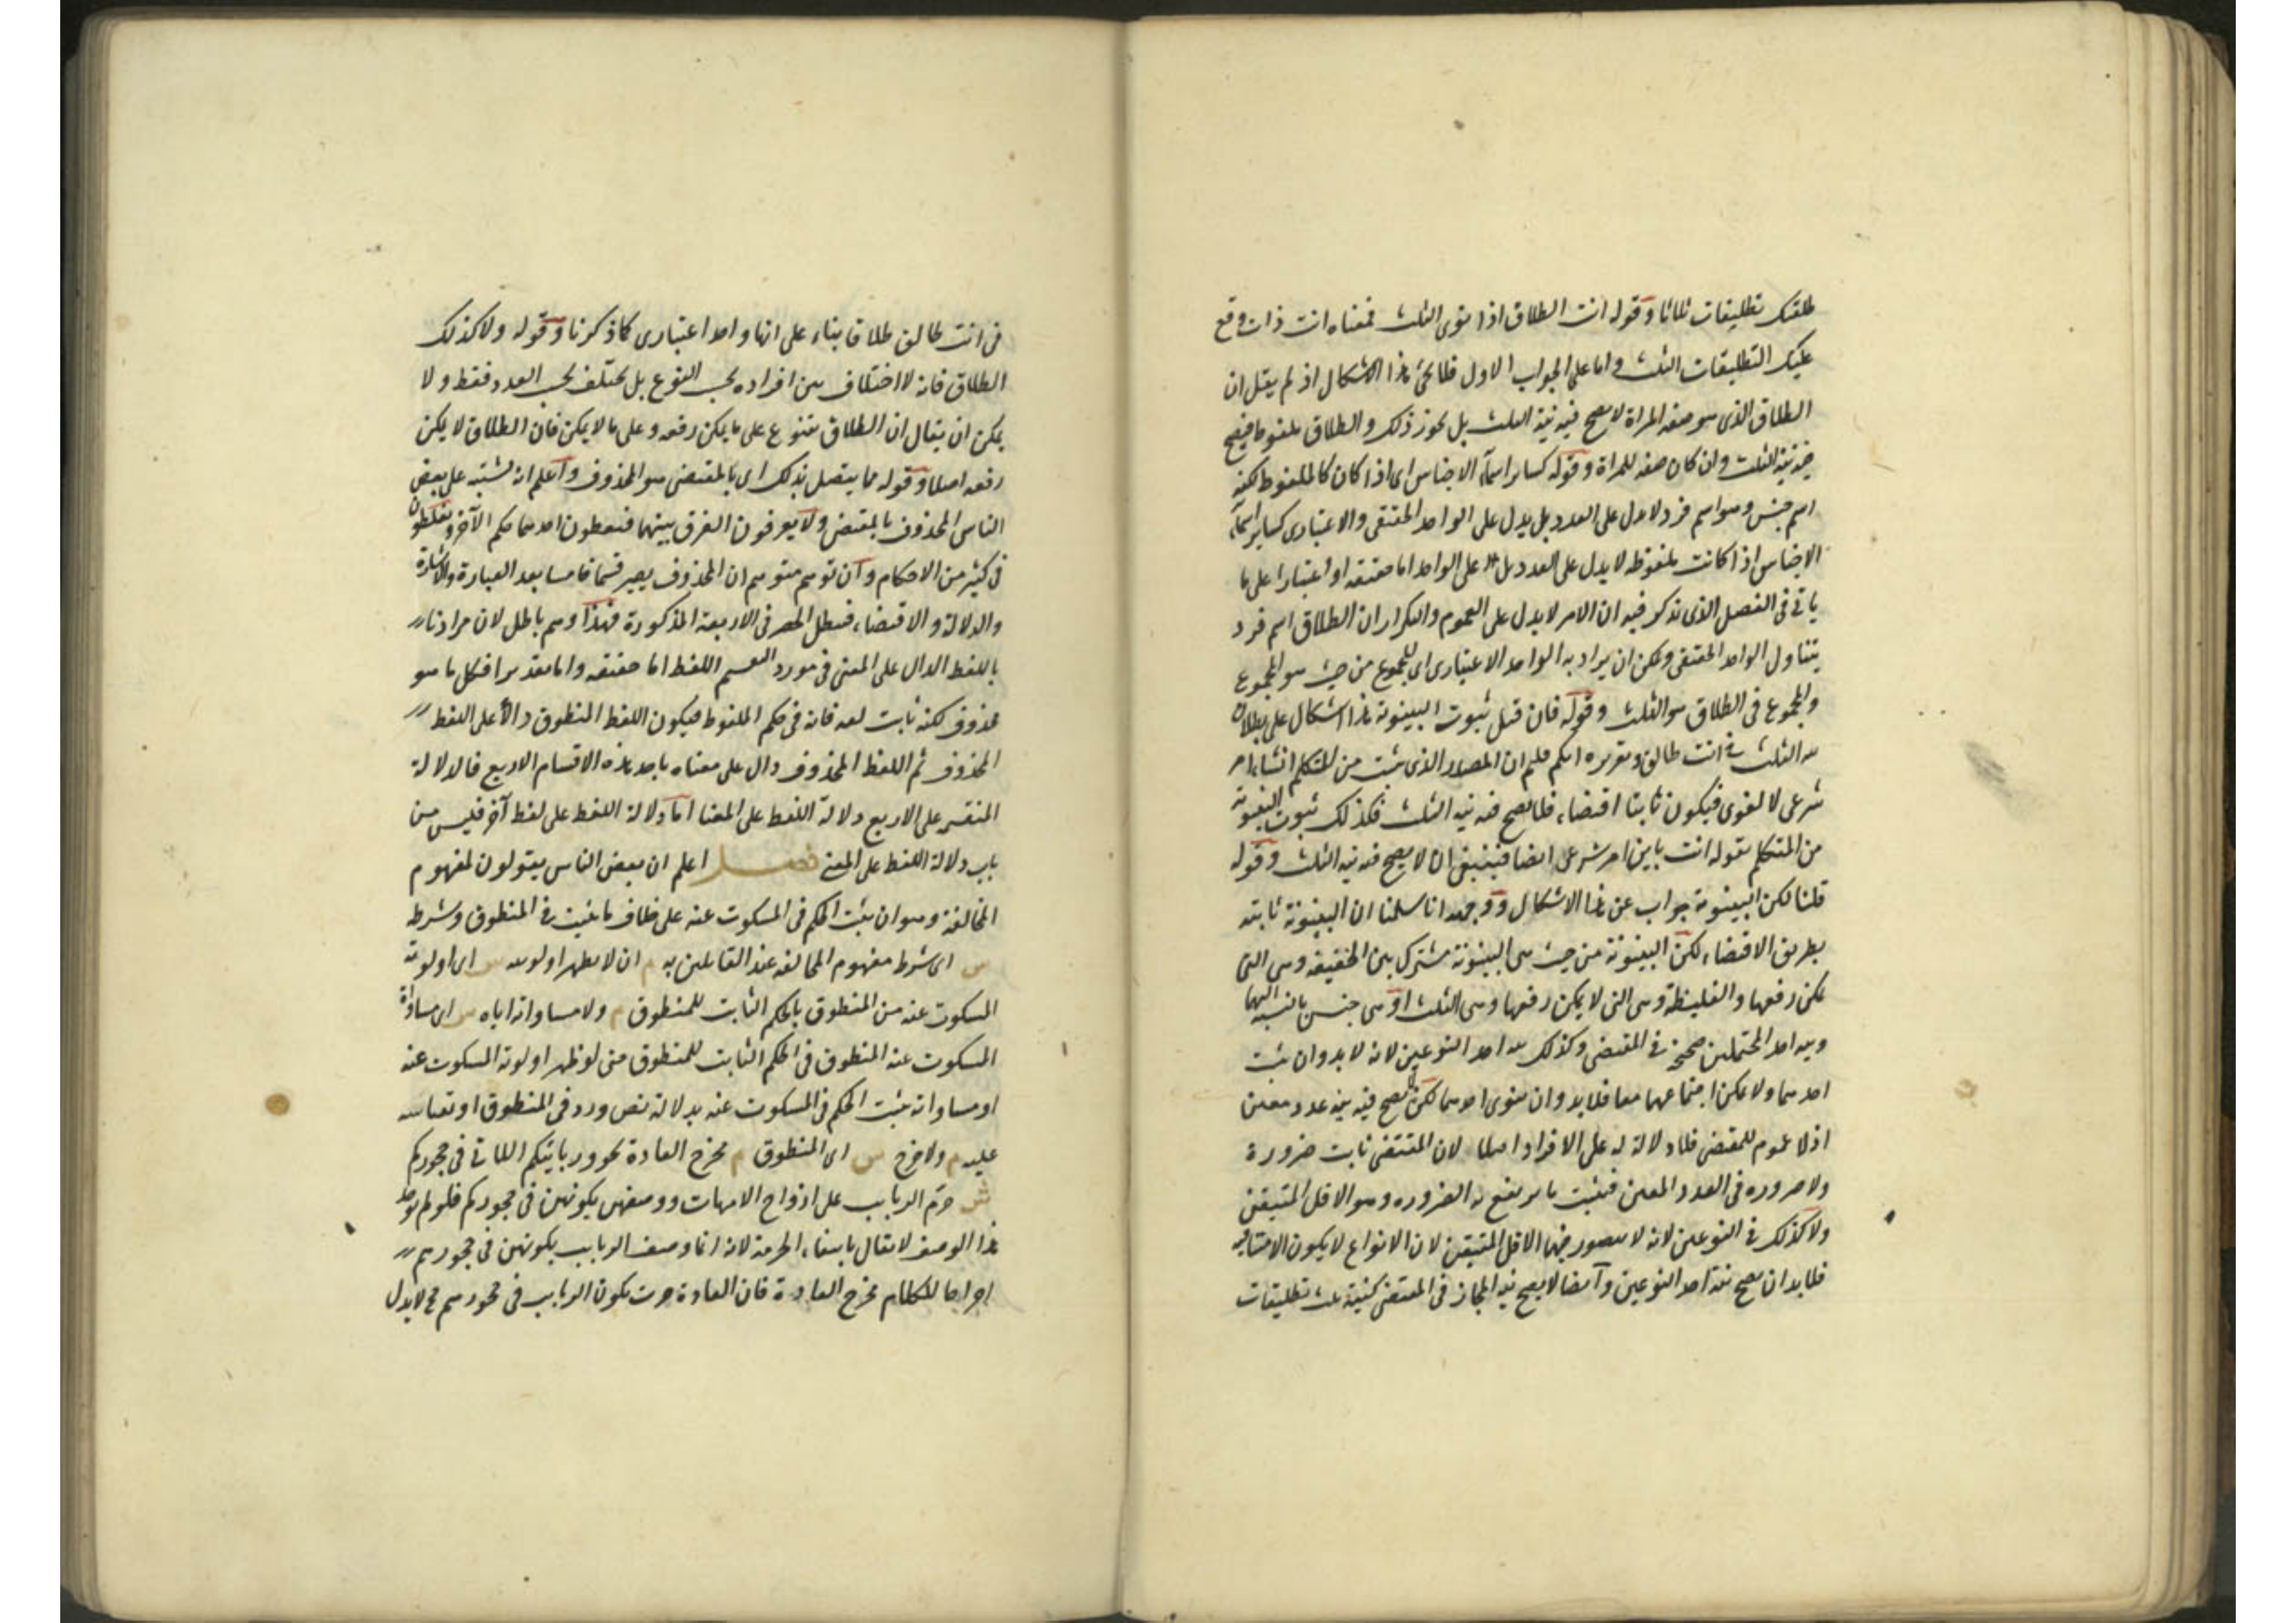 طلقتك تطليقات ثلاثا وقوله انت الطلاق اذا نوى الثلث فمعناه انت ذات وقع
عليك التطليقات الثلث واما على الجواب الاول فلا يجئ هذا الاشكال اذ لم يقل ان
الطلاق الذى هو صفة المراة لا يصح فيه نية الثلث بل يجوز ذلك والطلاق ملفوظ فيصح
فيه نية الثلث وان كان صفة للمراة وقوله كسائر اسماء الاجناس اى اذا كان كالملفوظ لكنه
اسم جنس وهو اسم فرد لا يدل على العدد بل يدل على الواحد الحقيقى والاعتبارى كسائر اسماء
الاجناس اذا كانت ملفوظة لا يدل على العدد بل على الواحد اما حقيقة او اعتبارا على ما
ياتى فى الفصل الذى نذكر فيه ان الامر لا يدل على العموم والتكرار ان الطلاق اسم فرد
يتناول الواحد الحقيقى ويمكن ان يراد به الواحد الاعتبارى اى المجموع من حيث هو المجموع
والمجموع فى الطلاق هو الثلث وقوله فان قيل ثبوت البينونة هذا اشكال على بطلان
نية الثلث فى انت طالق وتقريره انكم قلتم ان المصدر الذى يثبت من المتكلم انشاء امر
شرعى لا لغوى فيكون ثابتا اقتضاء فلا يصح فيه نية الثلث فكذلك ثبوت البينونة
من المتكلم بقوله انت باين امر شرعى ايضا فينبغى ان لا يصح فيه نية الثلث وقوله
قلنا لكن البينونة جواب عن هذا الاشكال ووجهه انا سلمنا ان البينونة ثابتة
بطريق الاقتضاء لكن البينونة من حيث هى البينونة مشترك بين الخفيفة وهى التى
يمكن رفعها والغليظة وهى التى لا يمكن رفعها وهى الثلث او هى جنس بالنسبة اليهما
ونية احد المحتملين صحيحة فى المقتضى وكذلك نية احد النوعين لانه لا بد وان يثبت
احدهما ولا يمكن اجتماعهما معا فلا بد وان ينوى احدهما لكن لا يصح فيه نية عدد معين
اذ لا عموم للمقتضى فلا دلالة له على الافراد اصلا لان المقتضى ثابت ضرورة
ولا ضرورة فى العدد المعين فيثبت ما يرتفع به الضرورة وهو الاقل المتيقن
ولا كذلك فى النوعين لانه لا يتصور فيهما الاقل المتيقن لان الانواع لا يكون الا متنافية
فلا بد ان يصح نية احد النوعين وايضا لا يصح نية المجاز فى المقتضى كنية ثلث تطليقات
فى انت طالق طلاقا بناء على انها واحد اعتبارى كما ذكرنا وقوله ولا كذلك
الطلاق فانه لا اختلاف بين افراده بحسب النوع بل يختلف بحسب العدد فقط ولا
يمكن ان يقال ان الطلاق يتنوع على ما يمكن رفعه وعلى ما لا يمكن فان الطلاق لا يمكن
رفعه اصلا وقوله مما يتصل بذلك اى بالمقتضى هو المحذوف واعلم انه يشتبه على بعض
الناس المحذوف بالمقتضى ولا يعرفون الفرق بينهما فيعطون احدهما حكم الآخر ويغلطون
فى كثير من الاحكام وان توهم متوهم ان المحذوف يصير قسما خامسا بعد العبارة والاشارة
والدلالة والاقتضاء فيبطل الحصر فى الاربعة المذكورة فهذا وهم باطل لان مرادنا
باللفظ الدال على المعنى فى مورد القسمة اللفظ اما حقيقة واما تقديرا فكل ما هو
محذوف لكنه ثابت لغة فانه فى حكم الملفوظ فيكون اللفظ المنطوق دالا على اللفظ
المحذوف ثم اللفظ المحذوف دال على معناه باحد هذه الاقسام الاربع فالدلالة
المنقسم على الاربع دلالة اللفظ على المعنا اما دلالة اللفظ على لفظ آخر فليس من
باب دلالة اللفظ على المعنى فصل اعلم ان بعض الناس يقولون لمفهوم
المخالفة وهو ان يثبت الحكم فى المسكوت عنه على خلاف ما يثبت فى المنطوق وشرط
ش اى شرط مفهوم المخالفة عند القائلين به م ان لا يظهر اولويته ش اى اولوية
المسكوت عنه من المنطوق بالحكم الثابت للمنطوق م ولا مساواته اياه ش اى مساواة
المسكوت عنه المنطوق فى الحكم الثابت للمنطوق حتى لو ظهر اولوية المسكوت عنه
او مساواته يثبت الحكم فى المسكوت عنه بدلالة نص ورد فى المنطوق او بقياسه
عليه م ولا خرج ش اى المنطوق م مخرج العادة نحو وربائبكم اللاتى فى حجوركم
ش حرم الربايب على ازواج الامهات ووصفهن بكونهن فى حجوركم فلو لم يوجد
هذا الوصف لا يقال بانتفاء الحرمة لانه انما وصف الربايب بكونهن فى حجورهم
اخراجا للكلام مخرج العادة فان العادة جرت بكون الربايب فى حجورهم فح لا يدل